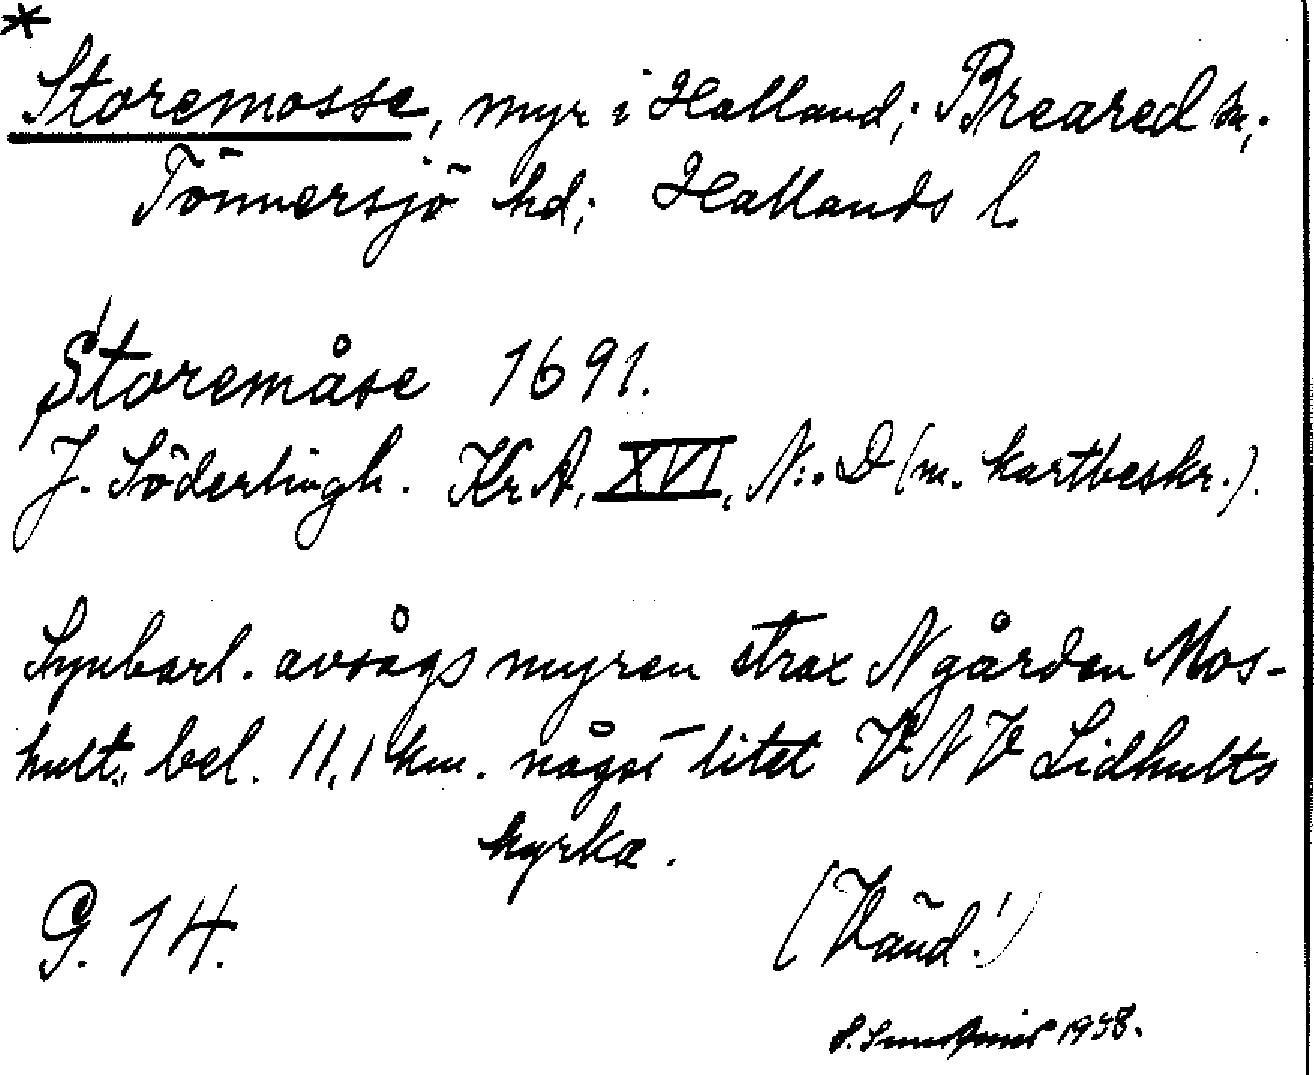 *
Storemosse, myr i Halland; Breared sn;
Tönnersjö hd; Hallands l.
Storemåse 1691.
J. Söderlingh. Kr A, XVI, N:. D (m. kartbeskr.).
Synbarl. avsågs myren strax N gården Mos-
hult, bel. 11,1 km. något litet VNV Lidhults
kyrka.
G. 14.
(Vänd!)
1938.